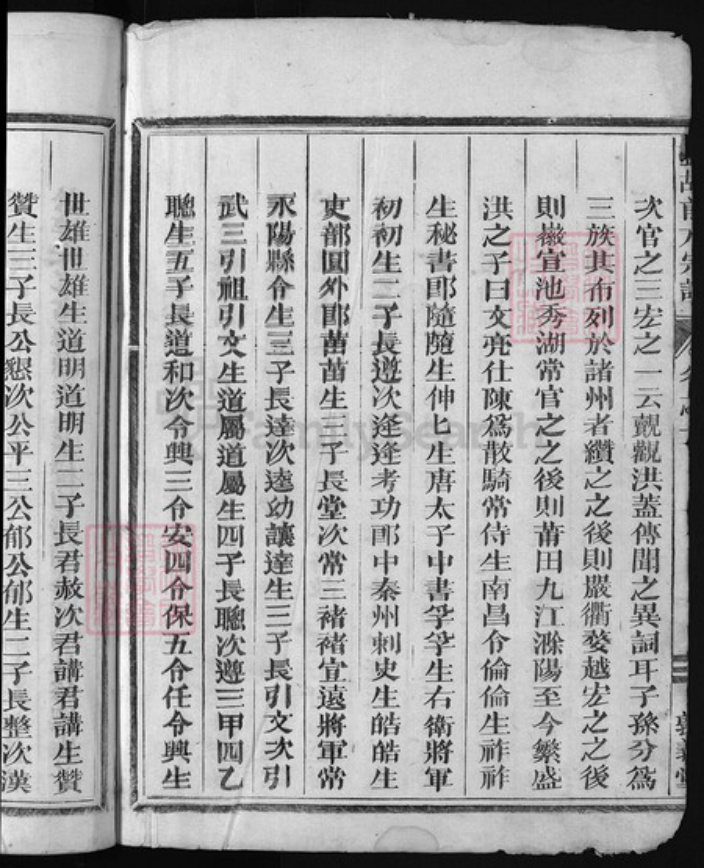 次官之三宏之一云覿觀洪蓋傳聞之異詞耳子孫分爲
三族其布列於諸州者纘之之後則嚴衢婺越宏之之後
則嚴宣池秀湖常官之之後則莆田九江滁陽至今繁盛
洪之子曰文亮仕陳爲散騎常侍生南昌令倫倫生祚祚
生秘書郎隨隨生伸匕生唐太子中書孚孚生右衛將軍
初初生二子長遵次逢逢考功郎中秦州刺史生皓皓生
吏部圓外郎苗苗生三子長堂次常三褚褚宣遠將軍常
永陽縣令生三子長達次逵幼讓達生三子長引文次引
武三引祖引文生道屬道屬生四子長聰次遵三甲四乙
聰生五子長道和次令興三令安四令保五令任令興生
世雄世雄生道明道明生二子長君赦次君講君講生贊
贊生三子長公懇次公平三公郁公郁生二子長整次漢
FamilySearch